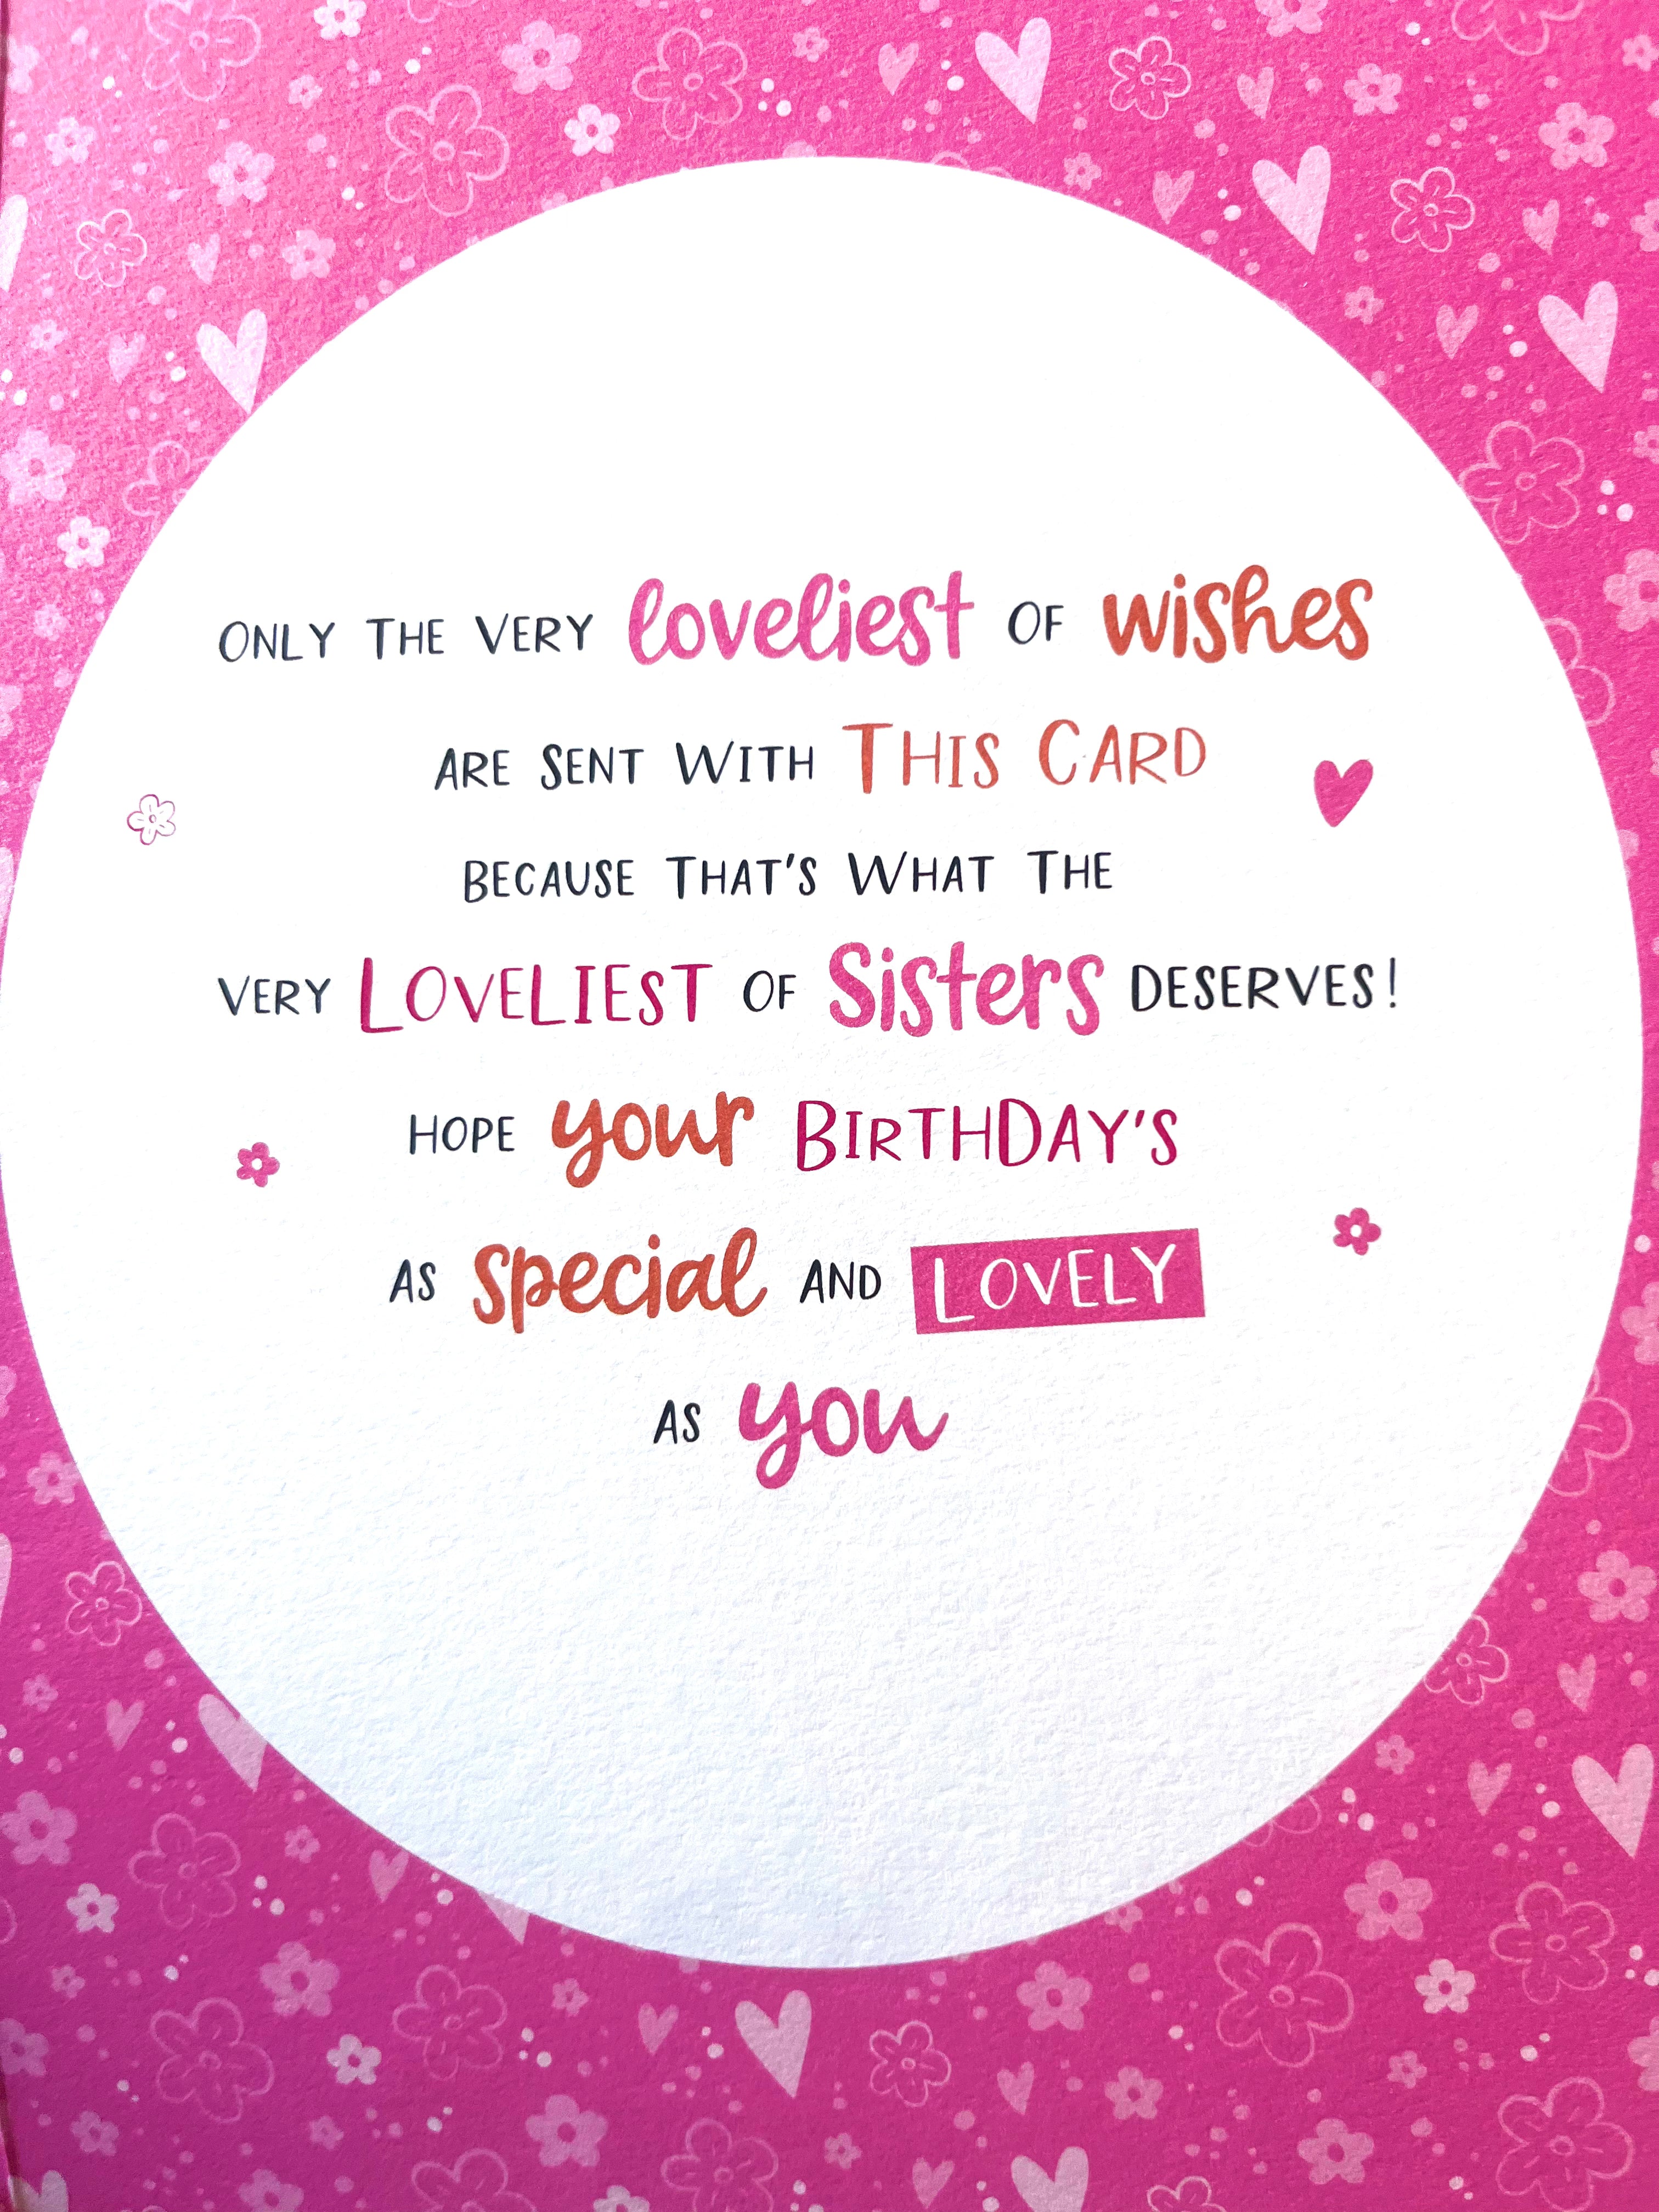 ONLY THE VERY loveliest OF wishes
ARE SENT WITH THIS CARD
BECAUSE THAT'S WHAT THE
VERY LOVELIEST OF Sisters DESERVES!
HOPE your BIRTHDAY'S
AS special AND LOVELY
AS you